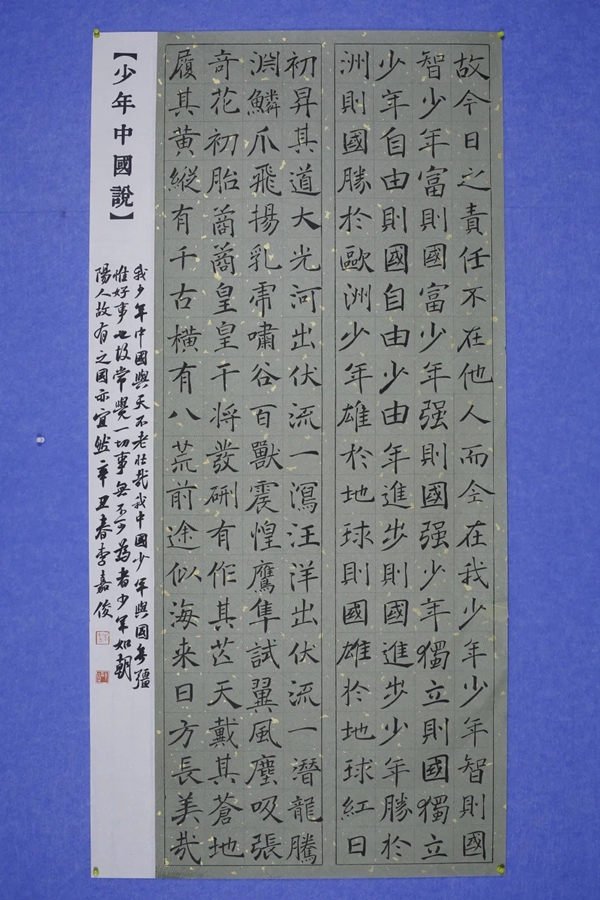 故今日之責任不在他人而全在我少年少年智則國
智少年富則國富少年强則國强少年獨立則國獨立
少年自由則國自由少由年進步則國進步少年勝於
洲則國勝於歐洲少年雄於地球則國雄於地球紅日
初昇其道大光河出伏流一瀉汪洋出伏流一潛龍騰
淵鱗爪飛揚乳虎嘯谷百獸震惶鷹隼試翼風塵吸張
奇花初胎矞矞皇皇干將發硎有作其芒天戴其蒼地
履其黃縱有千古橫有八荒前途似海来日方長美哉
【少年中國說】
我少年中國與天不老壯哉我中國少年與國無疆
惟好事也故常覺一切事無不可為者少年如朝
陽人故有之國亦宜然辛丑春李嘉俊